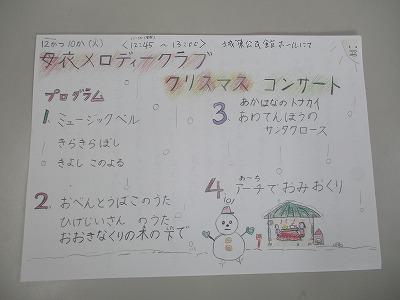 12がつ10か(火) 〈12:45 〜 13:00〉 城東公民館ホールにて
母衣メロディークラブ
クリスマス コンサート
プログラム
1. ミュージックベル
きらきらぼし
きよし このよる
2. おべんとうばこのうた
ひげじいさん のうた
おおきなくりの木の下で
3. あかはなのトナカイ
あわてんぼうの
サンタクロース
4. アーチでおみおくり